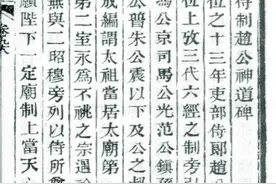 待制趙公神道碑
位之十三年吏部侍郎趙
位上攷三代六經之制旁引
馮公京司馬公光范公鎮孫
公普朱公震以下及公之叔
成編謂太祖當居太廟第
第二室永為不祧之宗遇祫
無與二昭穆旁列以侍所尊
願陛下一定廟制上當天心